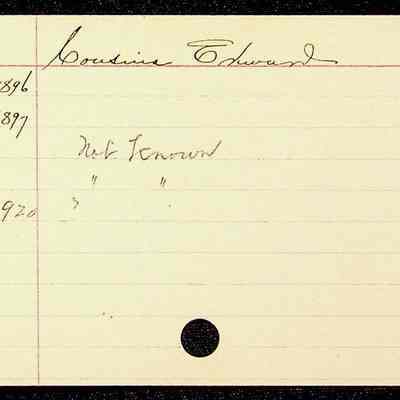 Cousins Edward
1896
1897
Not Known
" "
1920 "